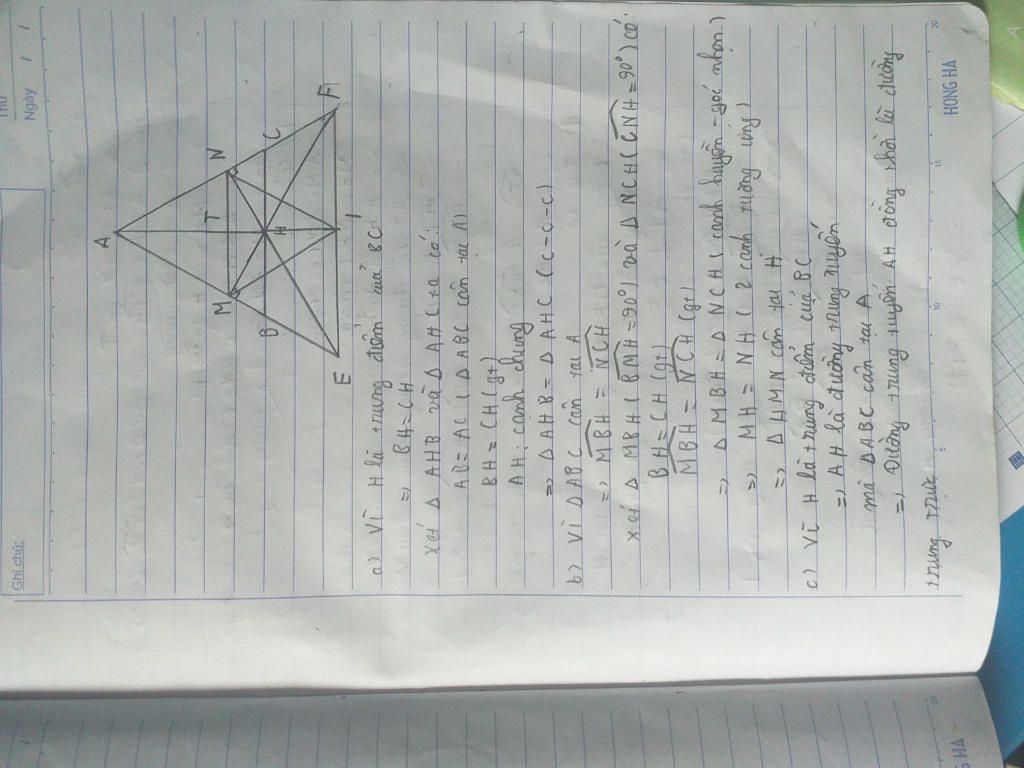 Thứ
Ngày
Ghi chú:
A
M T N
B H C
E I F
a) Vì H là trung điểm của BC
=> BH = CH
xét Δ AHB và Δ AHC ta có:
AB = AC (Δ ABC cân tại A)
BH = CH (gt)
AH: cạnh chung
=> Δ AHB = Δ AHC (c-c-c)
b) Vì Δ ABC cân tại A
=> MBH = NCH
xét Δ MBH (BMH = 90°) và Δ NCH (CNH = 90°) có:
BH = CH (gt)
MBH = NCH (gt)
=> Δ MBH = Δ NCH (cạnh huyền - góc nhọn)
=> MH = NH (2 cạnh tương ứng)
=> Δ HMN cân tại H
c) Vì H là trung điểm của BC
=> AH là đường trung tuyến
mà Δ ABC cân tại A
=> Đường trung tuyến AH đồng thời là đường
trung trực
5 10 15 20
HONG HA
20
G HA